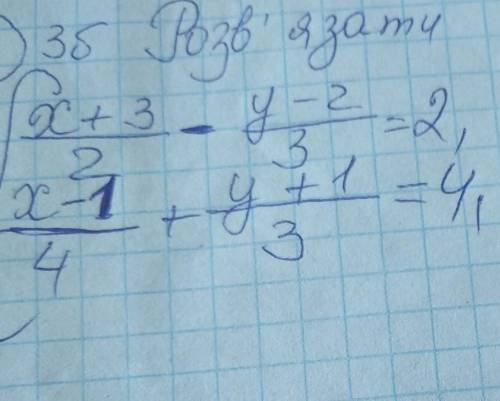 ) 3б Розв'язати
(x + 3)/2 - (y - 2)/3 = 2,
(x - 1)/4 + (y + 1)/3 = 4,